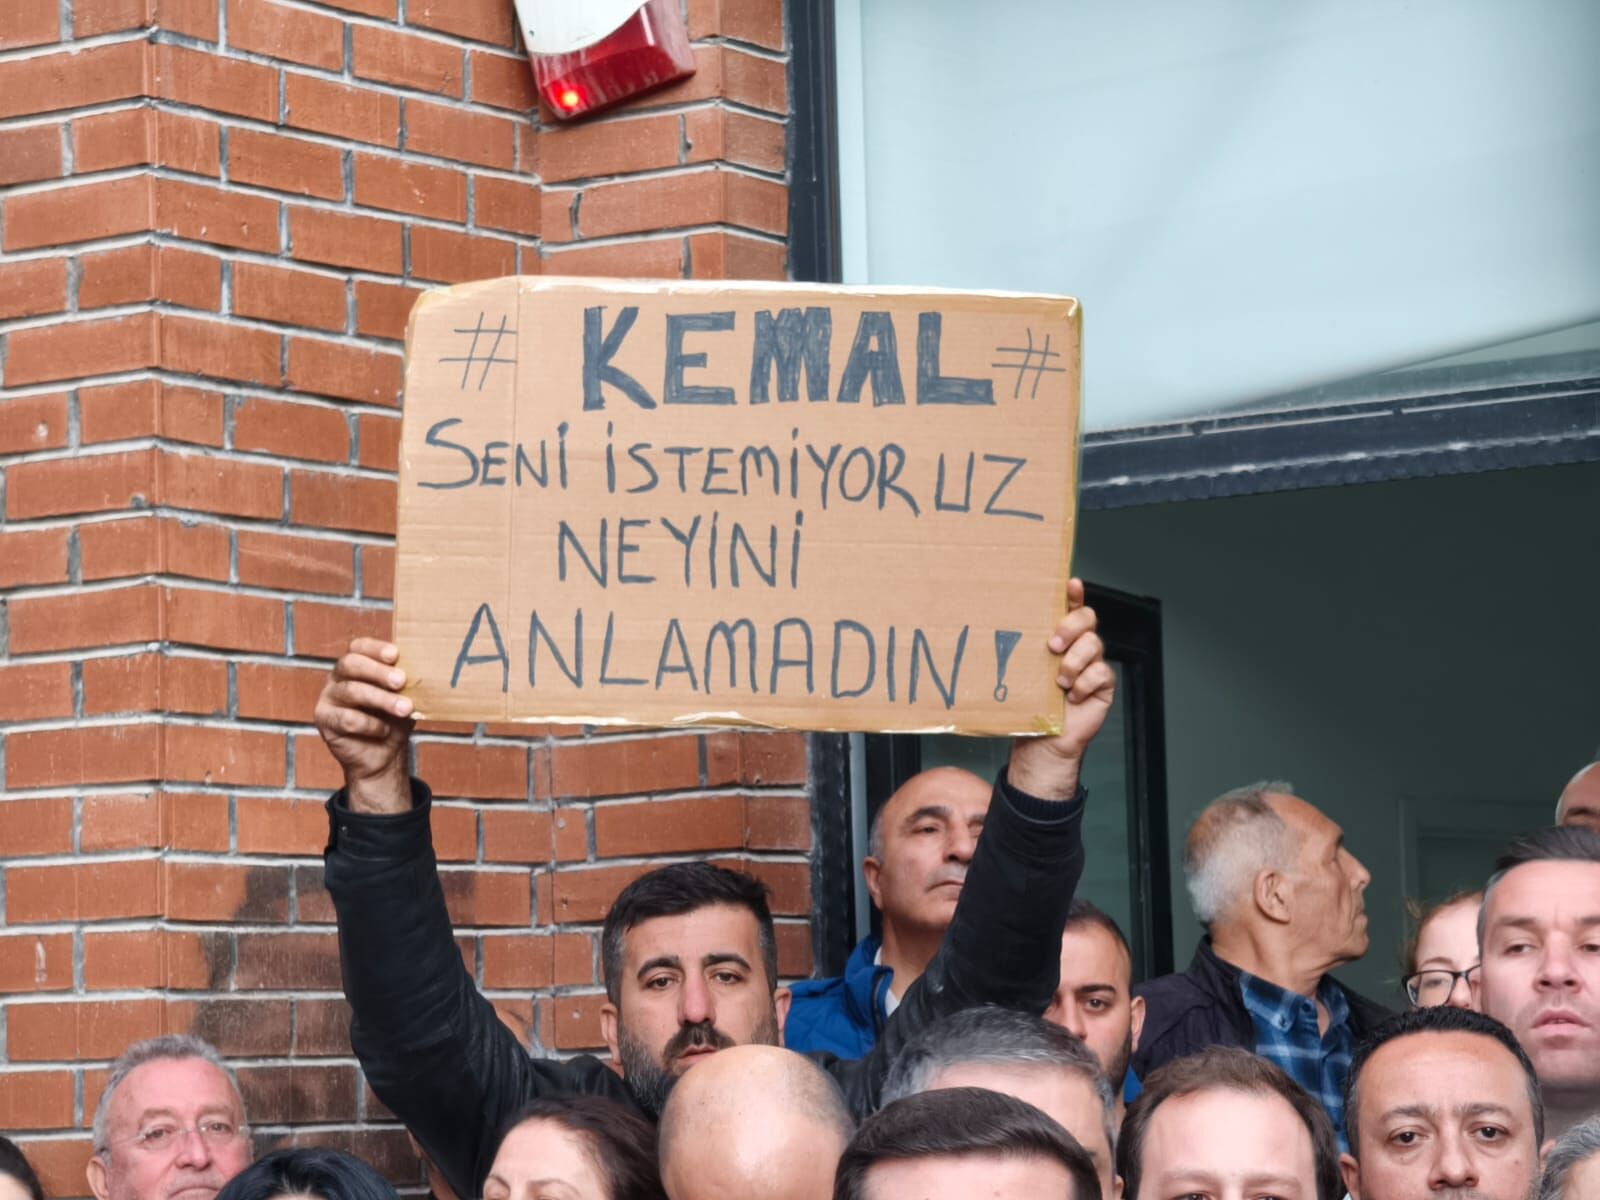 # KEMAL #
SENİ İSTEMİYORUZ
NEYİNİ
ANLAMADIN!